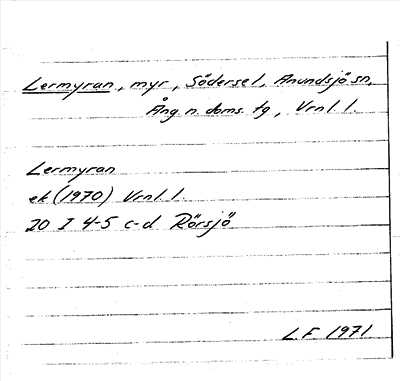 Lermyran, myr, Södersel, Anundsjö sn,
Ång. n. doms. tg, Vrnl. l.
Lermyran
ek (1970) Vrnl. l.
20 I 4-5 c-d Rörsjö
L.F. 1971